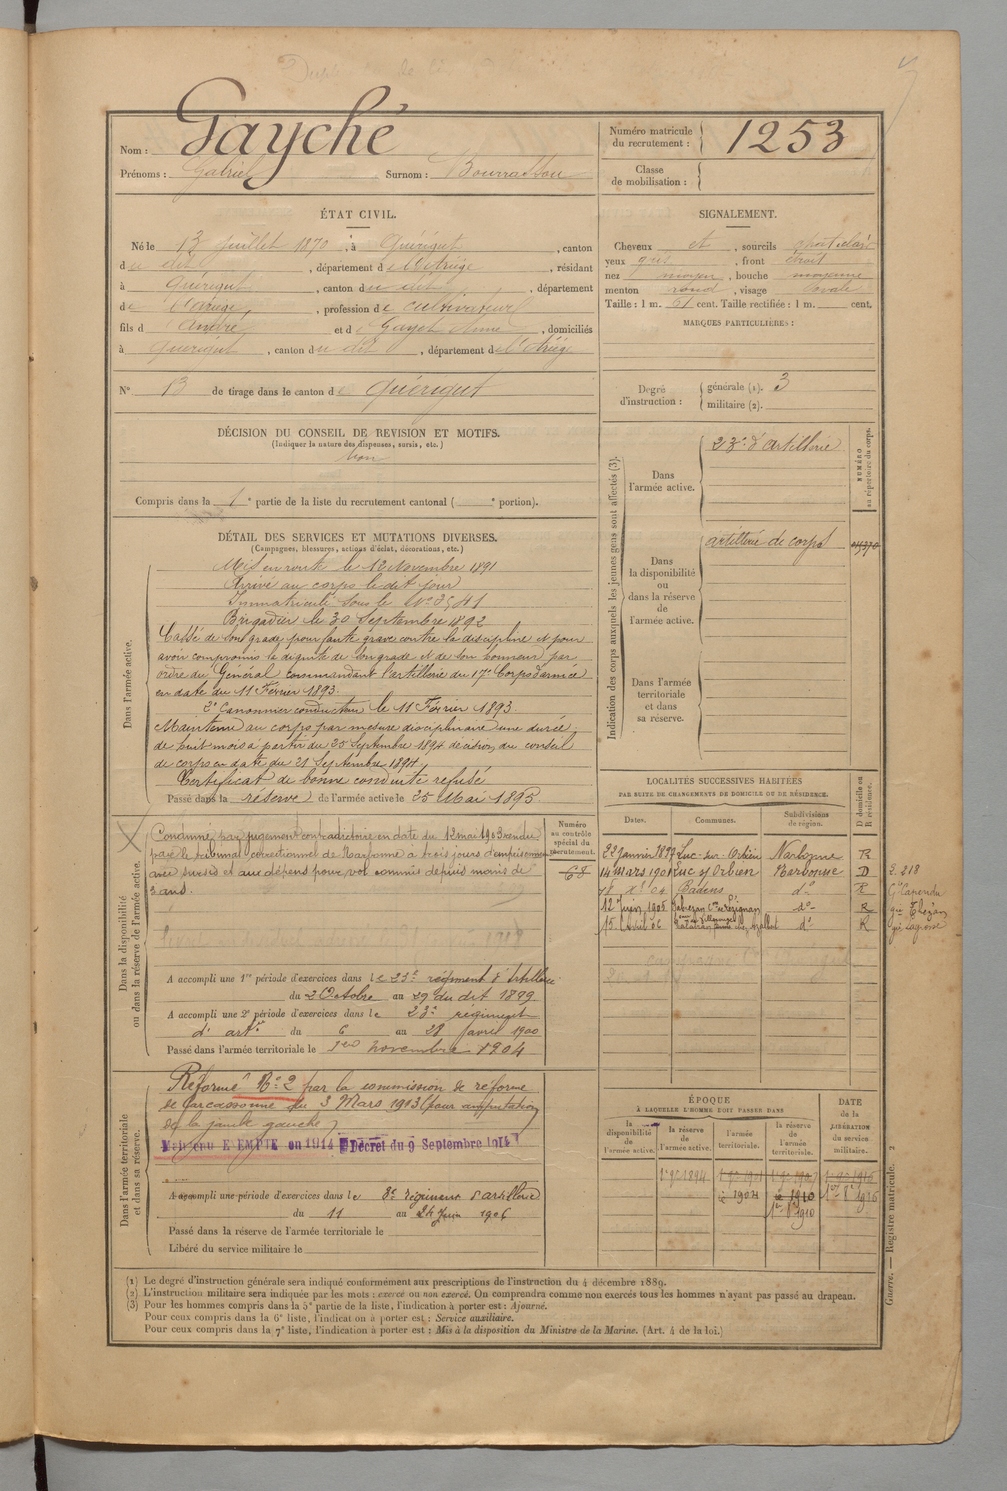 Gayché
Nom :
Prénoms : Gabriel Surnom : Bourrassou
Numéro matricule du recrutement : 1253
Classe de mobilisation :
ÉTAT CIVIL.
Né le 13 juillet 1870, à Quérigut, canton
du dit, département de l'Ariège, résidant
à Quérigut, canton du dit, département
de l'Ariège, profession de cultivateur
fils d' André et de Gayet Anne, domiciliés
à Quérigut, canton du dit, département de l'Ariège
N° 13 de tirage dans le canton de Quérigut
SIGNALEMENT.
Cheveux et, sourcils chat. clair
yeux gris, front étroit
nez moyen, bouche moyenne
menton rond, visage ovale
Taille : 1 m. 61 cent. Taille rectifiée : 1 m. cent.
MARQUES PARTICULIÈRES :
Degré d'instruction : générale (1). 3
militaire (2).
DÉCISION DU CONSEIL DE REVISION ET MOTIFS.
(Indiquer la nature des dispenses, sursis, etc.)
bon
Compris dans la 1e partie de la liste du recrutement cantonal ( e portion).
DÉTAIL DES SERVICES ET MUTATIONS DIVERSES.
(Campagnes, blessures, actions d'éclat, décorations, etc.)
Dans l'armée active.
Mis en route le 12 Novembre 1891
Arrivé au corps le dit jour
Immatriculé sous le N° 3541
Brigadier le 30 Septembre 1892
Cassé de son grade pour faute grave contre la discipline et pour
avoir compromis la dignité de son grade et de son honneur par
ordre du Général commandant l'artillerie du 17e Corps d'armée
en date du 11 Février 1893.
2e Canonnier conducteur le 11 Février 1893.
Maintenu au corps par mesure disciplinaire une durée
de huit mois à partir du 25 Septembre 1894 décision du conseil
de corps en date du 21 Septembre 1894
Certificat de bonne conduite refusé
Passé dans la réserve de l'armée active le 25 Mai 1895.
Indication des corps auxquels les jeunes gens sont affectés (3).
NUMÉRO au répertoire du corps.
Dans l'armée active.
23e d'artillerie
Dans la disponibilité ou dans la réserve de l'armée active.
artillerie de corps
Dans l'armée territoriale et dans sa réserve.
Dans la disponibilité ou dans la réserve de l'armée active.
Condamné par jugement contradictoire en date du 12 mai 1903 rendu
par le tribunal correctionnel de Narbonne à trois jours d'emprisonnement
avec sursis et aux dépens pour vol commis depuis moins de
3 ans.
Numéro au contrôle spécial du recrutement.
A accompli une 1re période d'exercices dans le 23e régiment d'Artillerie
du 2 Octobre au 29 du dit 1899
A accompli une 2e période d'exercices dans le 23e régiment
d' artie du 6 au 28 1900
Passé dans l'armée territoriale le 1er novembre 1904
LOCALITÉS SUCCESSIVES HABITÉES
PAR SUITE DE CHANGEMENTS DE DOMICILE OU DE RÉSIDENCE.
D domicile ou R résidence.
Dates. Communes. Subdivisions de région.
22 janvier 1897 Luc-sur-Orbieu Narbonne R
14 Mars 1901 Luc s/ Orbieu Narbonne D 2. 218
Xe 04 Badens do R Gie Capendu
12 Juin 1905 do R gie
15 Avril 06 do R gie Lagrasse
Dans l'armée territoriale et dans sa réserve.
Réformé N° 2 par la commission de réforme
de Carcassonne du 3 Mars 1903 (pour amputation
de la jambe gauche)
Maintenu EXEMPTE en 1914 Décret du 9 Septembre 1914
A accompli une période d'exercices dans le 3e régiment d'artillerie
du 11 au 24 Juin 1906
Passé dans la réserve de l'armée territoriale le
Libéré du service militaire le
ÉPOQUE
À LAQUELLE L'HOMME DOIT PASSER DANS
DATE de la LIBÉRATION du service militaire.
la disponibilité de l'armée active. la réserve de l'armée active. l'armée territoriale. la réserve de l'armée territoriale.
1894 1904 1910 1916
(1) Le degré d'instruction générale sera indiqué conformément aux prescriptions de l'instruction du 4 décembre 1889.
(2) L'instruction militaire sera indiquée par les mots : exercé ou non exercé. On comprendra comme non exercés tous les hommes n'ayant pas passé au drapeau.
(3) Pour les hommes compris dans la 5e partie de la liste, l'indication à porter est : Ajourné.
Pour ceux compris dans la 6e liste, l'indication à porter est : Service auxiliaire.
Pour ceux compris dans la 7e liste, l'indication à porter est : Mis à la disposition du Ministre de la Marine. (Art. 4 de la loi.)
Guerre. — Registre matricule. 2